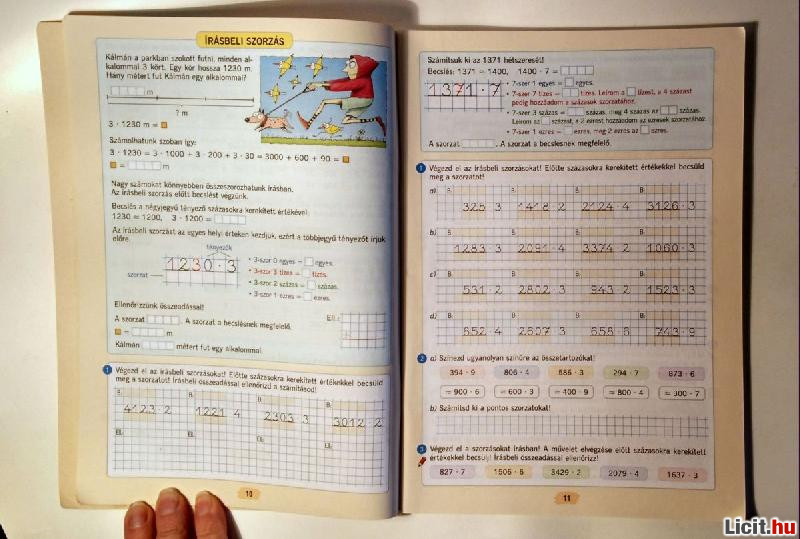 ÍRÁSBELI SZORZÁS
Kálmán a parkban szokott futni, minden al-
kalommal 3 kört. Egy kör hossza 1230 m.
Hány métert fut Kálmán egy alkalommal?
m
? m
3 · 1230 m =
Számolhatunk szóban így:
3 · 1230 = 3 · 1000 + 3 · 200 + 3 · 30 = 3000 + 600 + 90 =
= m
Nagy számokat könnyebben összeszorozhatunk írásban.
Az írásbeli szorzás előtt becslést végzünk.
Becslés a négyjegyű tényező százasokra kerekített értékével:
1230 ≈ 1200, 3 · 1200 =
Az írásbeli szorzást az egyes helyi értéken kezdjük, ezért a többjegyű tényezőt írjuk
előre.
tényezők
1230 · 3
szorzat
• 3-szor 0 egyes = egyes.
• 3-szor 3 tízes = tízes.
• 3-szor 2 százas = százas.
• 3-szor 1 ezres = ezres.
Ellenőrizzünk összeadással!
A szorzat . A szorzat a becslésnek megfelelő.
Ell.:
= m
Kálmán métert fut egy alkalommal.
1 Végezd el az írásbeli szorzásokat! Előtte százasokra kerekített értékekkel becsüld
meg a szorzatot! Írásbeli összeadással ellenőrizd a számításod!
B.: B.: B.: B.:
4123 · 2 1221 · 4 2303 · 3 3012 · 2
Ell.: Ell.: Ell.: Ell.:
10
Számítsuk ki az 1371 hétszeresét!
Becslés: 1371 ≈ 1400, 1400 · 7 =
1371 · 7
• 7-szer 1 egyes = egyes.
• 7-szer 7 tízes = tízes. Leírom a tízest, a 4 százast
pedig hozzáadom a százasok szorzatához.
• 7-szer 3 százas = százas, meg 4 százas az százas.
Leírom az százast, a 2 ezrest hozzáadom az ezresek szorzatához.
• 7-szer 1 ezres = ezres, meg 2 ezres az ezres.
A szorzat . A szorzat a becslésnek megfelelő.
1 Végezd el az írásbeli szorzásokat! Előtte százasokra kerekített értékekkel becsüld
meg a szorzatot!
a) B.: B.: B.: B.:
325 · 3 1418 · 2 2124 · 4 3126 · 3
b) B.: B.: B.: B.:
1283 · 3 2091 · 4 3374 · 2 1060 · 3
c) B.: B.: B.: B.:
531 · 2 2802 · 3 943 · 2 1523 · 3
d) B.: B.: B.: B.:
852 · 4 2607 · 3 658 · 743 · 9
2 a) Színezd ugyanolyan színűre az összetartozókat!
394 · 9 806 · 4 586 · 3 294 · 7 873 · 6
≈ 900 · 6 ≈ 600 · 3 ≈ 400 · 9 ≈ 800 · 4 ≈ 300 · 7
b) Számítsd ki a pontos szorzatokat!
3 Végezd el a szorzásokat írásban! A művelet elvégzése előtt százasokra kerekített
értékekkel becsülj! Írásbeli összeadással ellenőrizz!
827 · 7 1506 · 6 3429 · 2 2079 · 4 1637 · 3
11
Licit.hu